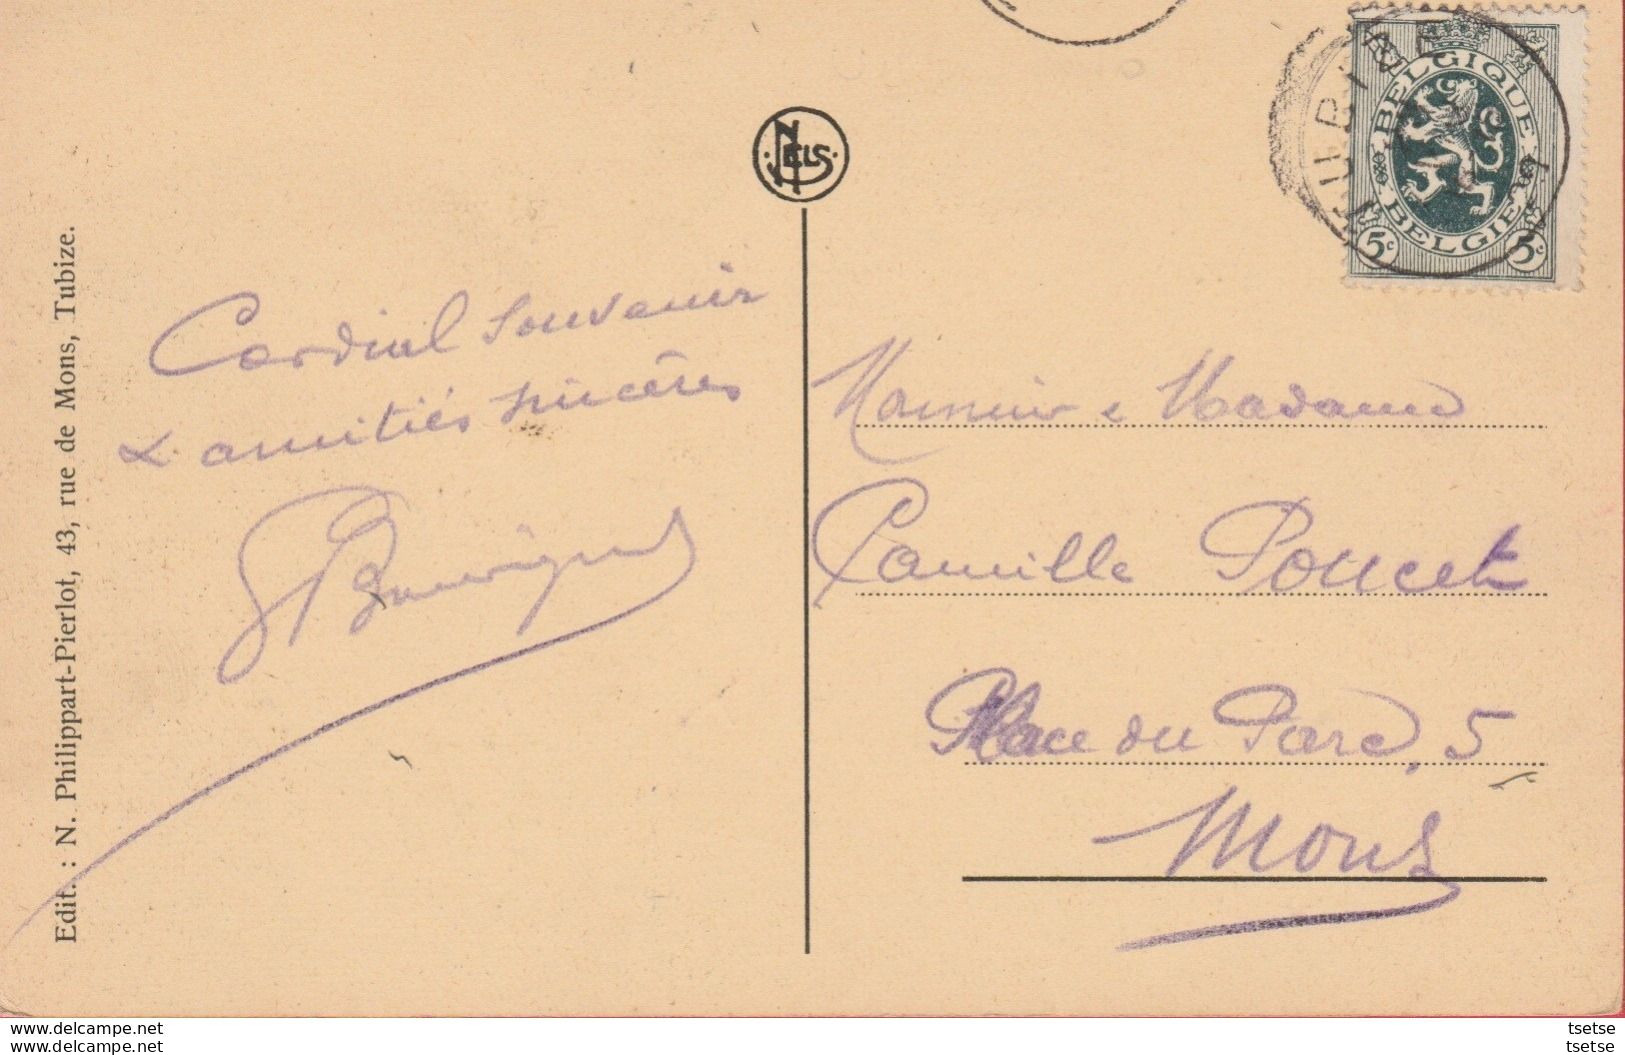 NELS
BELGIQUE
BELGIE
5c 5c
Edit. : N. Philippart-Pierlot, 43, rue de Mons, Tubize.
Cordial souvenir
& amitiés sincères
Monsieur & Madame
Camille Poucet
Place du Parc, 5
Mons
www.delcampe.net
www.delcampe.net
tsetse
tsetse